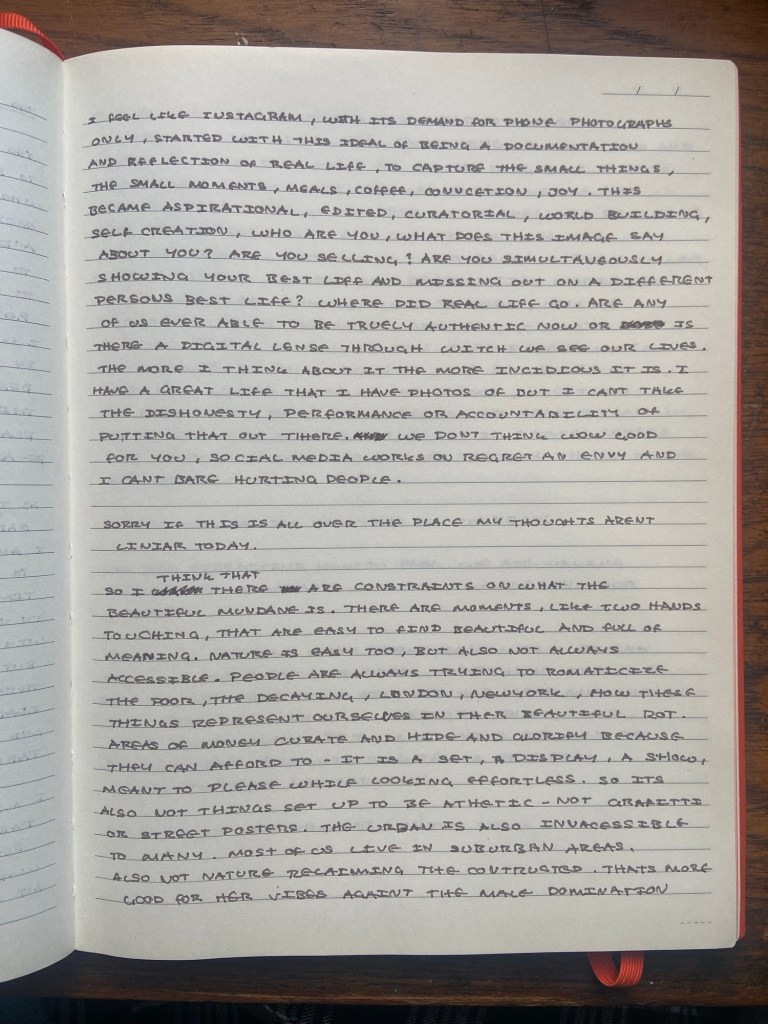 I FEEL LIKE INSTAGRAM, WITH ITS DEMAND FOR PHONE PHOTOGRAPHS
ONLY, STARTED WITH THIS IDEAL OF BEING A DOCUMENTATION
AND REFLECTION OF REAL LIFE, TO CAPTURE THE SMALL THINGS,
THE SMALL MOMENTS, MEALS, COFFEE, CONVCETION, JOY. THIS
BECAME ASPIRATIONAL, EDITED, CURATORIAL, WORLD BUILDING,
SELF CREATION, WHO ARE YOU, WHAT DOES THIS IMAGE SAY
ABOUT YOU? ARE YOU SELLING? ARE YOU SIMULTANEOUSLY
SHOWING YOUR BEST LIFE AND MISSING OUT ON A DIFFERENT
PERSONS BEST LIFE? WHERE DID REAL LIFE GO. ARE ANY
OF US EVER ABLE TO BE TRUELY AUTHENTIC NOW OR IS
THERE A DIGITAL LENSE THROUGH WITCH WE SEE OUR LIVES.
THE MORE I THINK ABOUT IT THE MORE INCIDIOUS IT IS. I
HAVE A GREAT LIFE THAT I HAVE PHOTOS OF BUT I CANT TAKE
THE DISHONESTY, PERFORMANCE OR ACCOUNTABILITY OF
PUTTING THAT OUT THERE. WE DONT THINK WOW GOOD
FOR YOU, SOCIAL MEDIA WORKS ON REGRET AN ENVY AND
I CANT BARE HURTING PEOPLE.
SORRY IF THIS IS ALL OVER THE PLACE MY THOUGHTS ARENT
LINIAR TODAY.
THINK THAT
SO I THERE ARE CONSTRAINTS ON WHAT THE
BEAUTIFUL MUNDANE IS. THERE ARE MOMENTS, LIKE TWO HANDS
TOUCHING, THAT ARE EASY TO FIND BEAUTIFUL AND FULL OF
MEANING. NATURE IS EASY TOO, BUT ALSO NOT ALWAYS
ACCESSIBLE. PEOPLE ARE ALWAYS TRYING TO ROMATICIZE
THE POOR, THE DECAYING, LONDON, NEWYORK, HOW THESE
THINGS REPRESENT OURSELVES IN THER BEAUTIFUL ROT.
AREAS OF MONEY CURATE AND HIDE AND GLORIFY BECAUSE
THEY CAN AFFORD TO - IT IS A SET, A DISPLAY, A SHOW,
MEANT TO PLEASE WHILE LOOKING EFFORTLESS. SO ITS
ALSO NOT THINGS SET UP TO BE ATHETIC - NOT GRAFITTI
OR STREET POSTERS. THE URBAN IS ALSO INVACESSIBLE
TO MANY. MOST OF US LIVE IN SUBURBAN AREAS.
ALSO NOT NATURE RECAIMING THE CONTRUSTED. THATS MORE
GOOD FOR HER VIBES AGAINT THE MALE DOMINATION